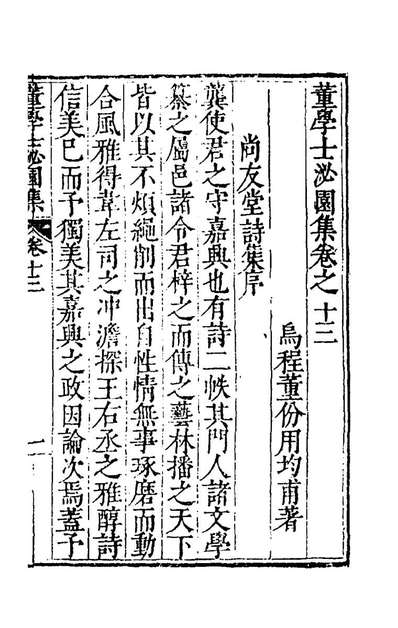 董學士泌園集卷之十三
烏程董份用均甫著
尚友堂詩集序
龔使君之守嘉興也有詩二帙其門人諸文學
纂之屬邑諸令君梓之而傳之藝林播之天下
皆以其不煩繩削而出自性情無事琢磨而動
合風雅得韋左司之冲澹探王右丞之雅醇詩
信美已而予獨美其嘉興之政因論次焉蓋予
董學士泌園集
卷十三
一